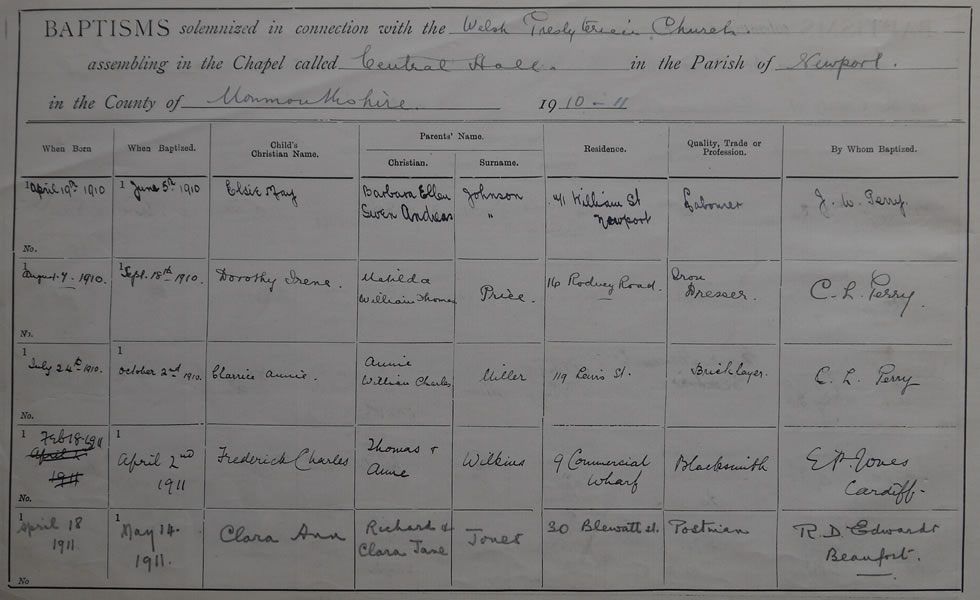 BAPTISMS solemnized in connection with the Welsh Presbyterian Church.
assembling in the Chapel called Central Hall. in the Parish of Newport.
in the County of Monmouthshire. 1910-11
When Born When Baptized. Child's Christian Name. Parents' Name. Christian. Surname. Residence. Quality, Trade or Profession. By Whom Baptized.
1 April 19th 1910 1 June 5th 1910 Elsie May Barbara Ellen Johnson 41 William St Labourer J. W. Perry
Swen Andreas " Newport
No.
1 August 7. 1910. 1 Sept. 18th 1910. Dorothy Irene. Matilda Price. 16 Rodney Road. Dresser. C. L. Perry.
William Thomas
No.
1 July 24th 1910. 1 October 2nd 1910. Clarrice Annie. Annie Miller 119 Lewis St. Bricklayer. C. L. Perry
William Charles
No.
1 Feb 18 1911 1 April 2nd Frederick Charles Thomas & Wilkins 9 Commercial Blacksmith E. P. Jones
April 1911 Annie Wharf Cardiff-
1911
No.
1 April 18 1 May 14. Clara Ann Richard & Jones 30 Blewatt st. Postman R. D. Edwards
1911. 1911. Clara Jane Beaufort.
No